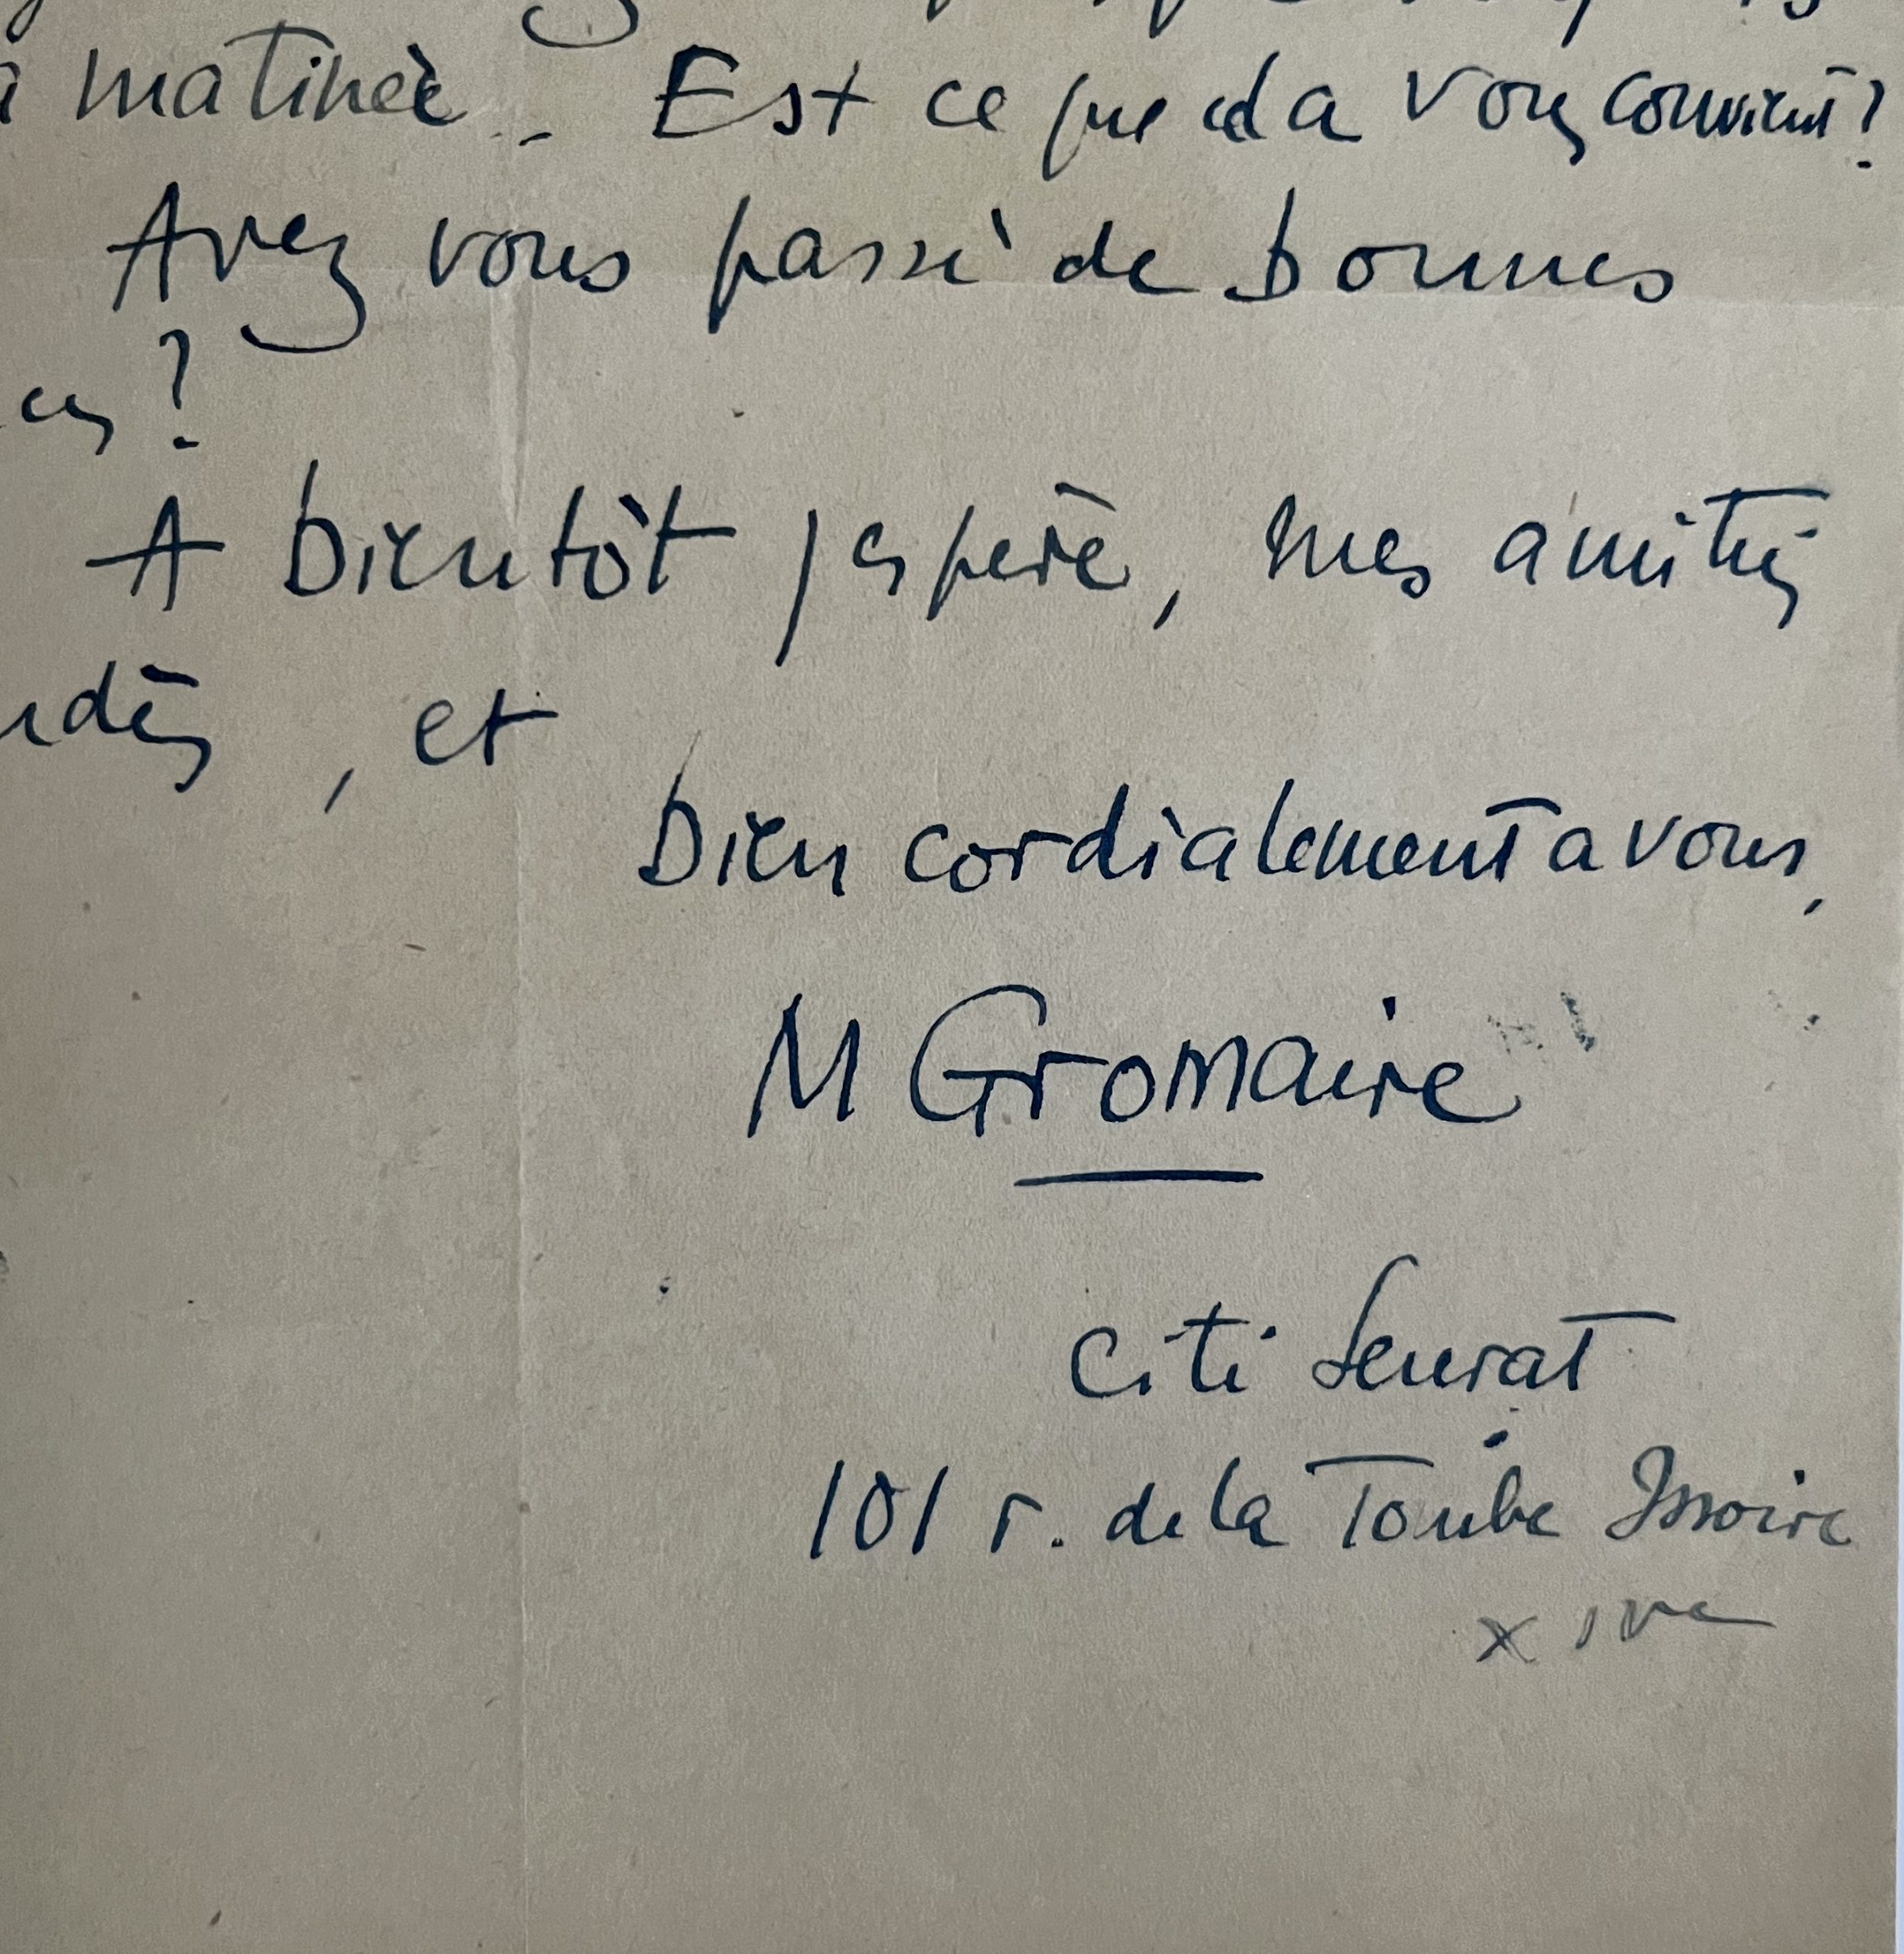 matinée. Est ce que cela vous convient?
Avez vous passé de bonnes
es?
A bientôt j'espère, mes amitiés
dès, et
bien cordialement a vous,
M Gromaire
Cité Seurat
101 r. de la Tombe Issoire
XIVe